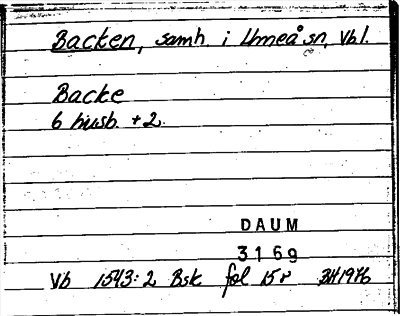 Backen, samh. i Umeå sn, Vbl.
Backe
6 husb. + 2.
DAUM
3169
Vb 1543:2 Bsk fol 15 r BH 1976